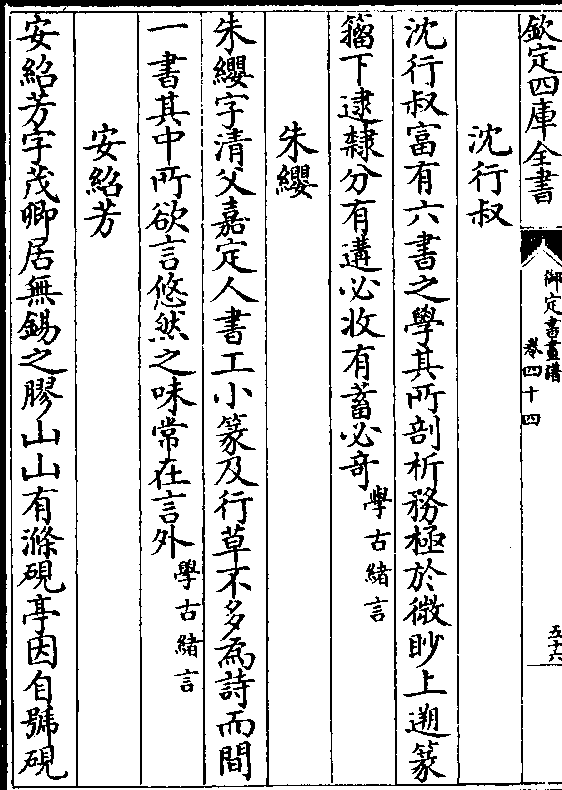 欽定四庫全書
御定書畫譜
卷四十四
五十六
沈行叔
沈行叔富有六書之學其所剖析務極於微眇上遡篆
籀下逮隸分有遘必收有蓄必奇學古緒言
朱纓
朱纓字清父嘉定人書工小篆及行草不多為詩而間
一書其中所欲言悠然之味常在言外學古緒言
安紹芳
安紹芳字茂卿居無錫之膠山山有滌硯亭因自號硯